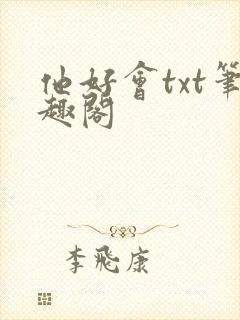 他好會txt筆
趣閣
李飛康